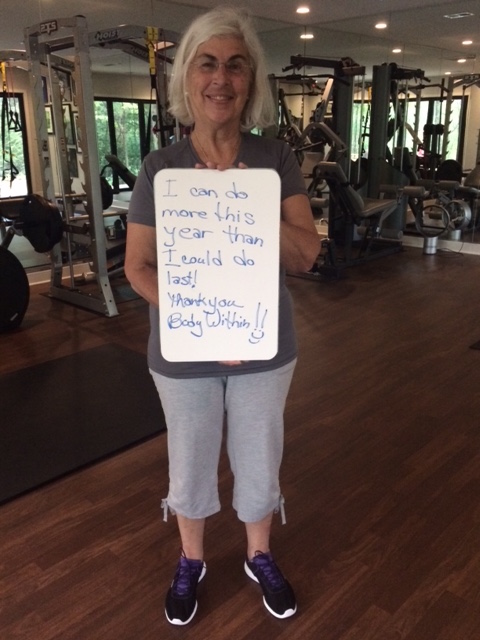 I can do
more this
year than
I could do
last!
Thank you
Body Within!!